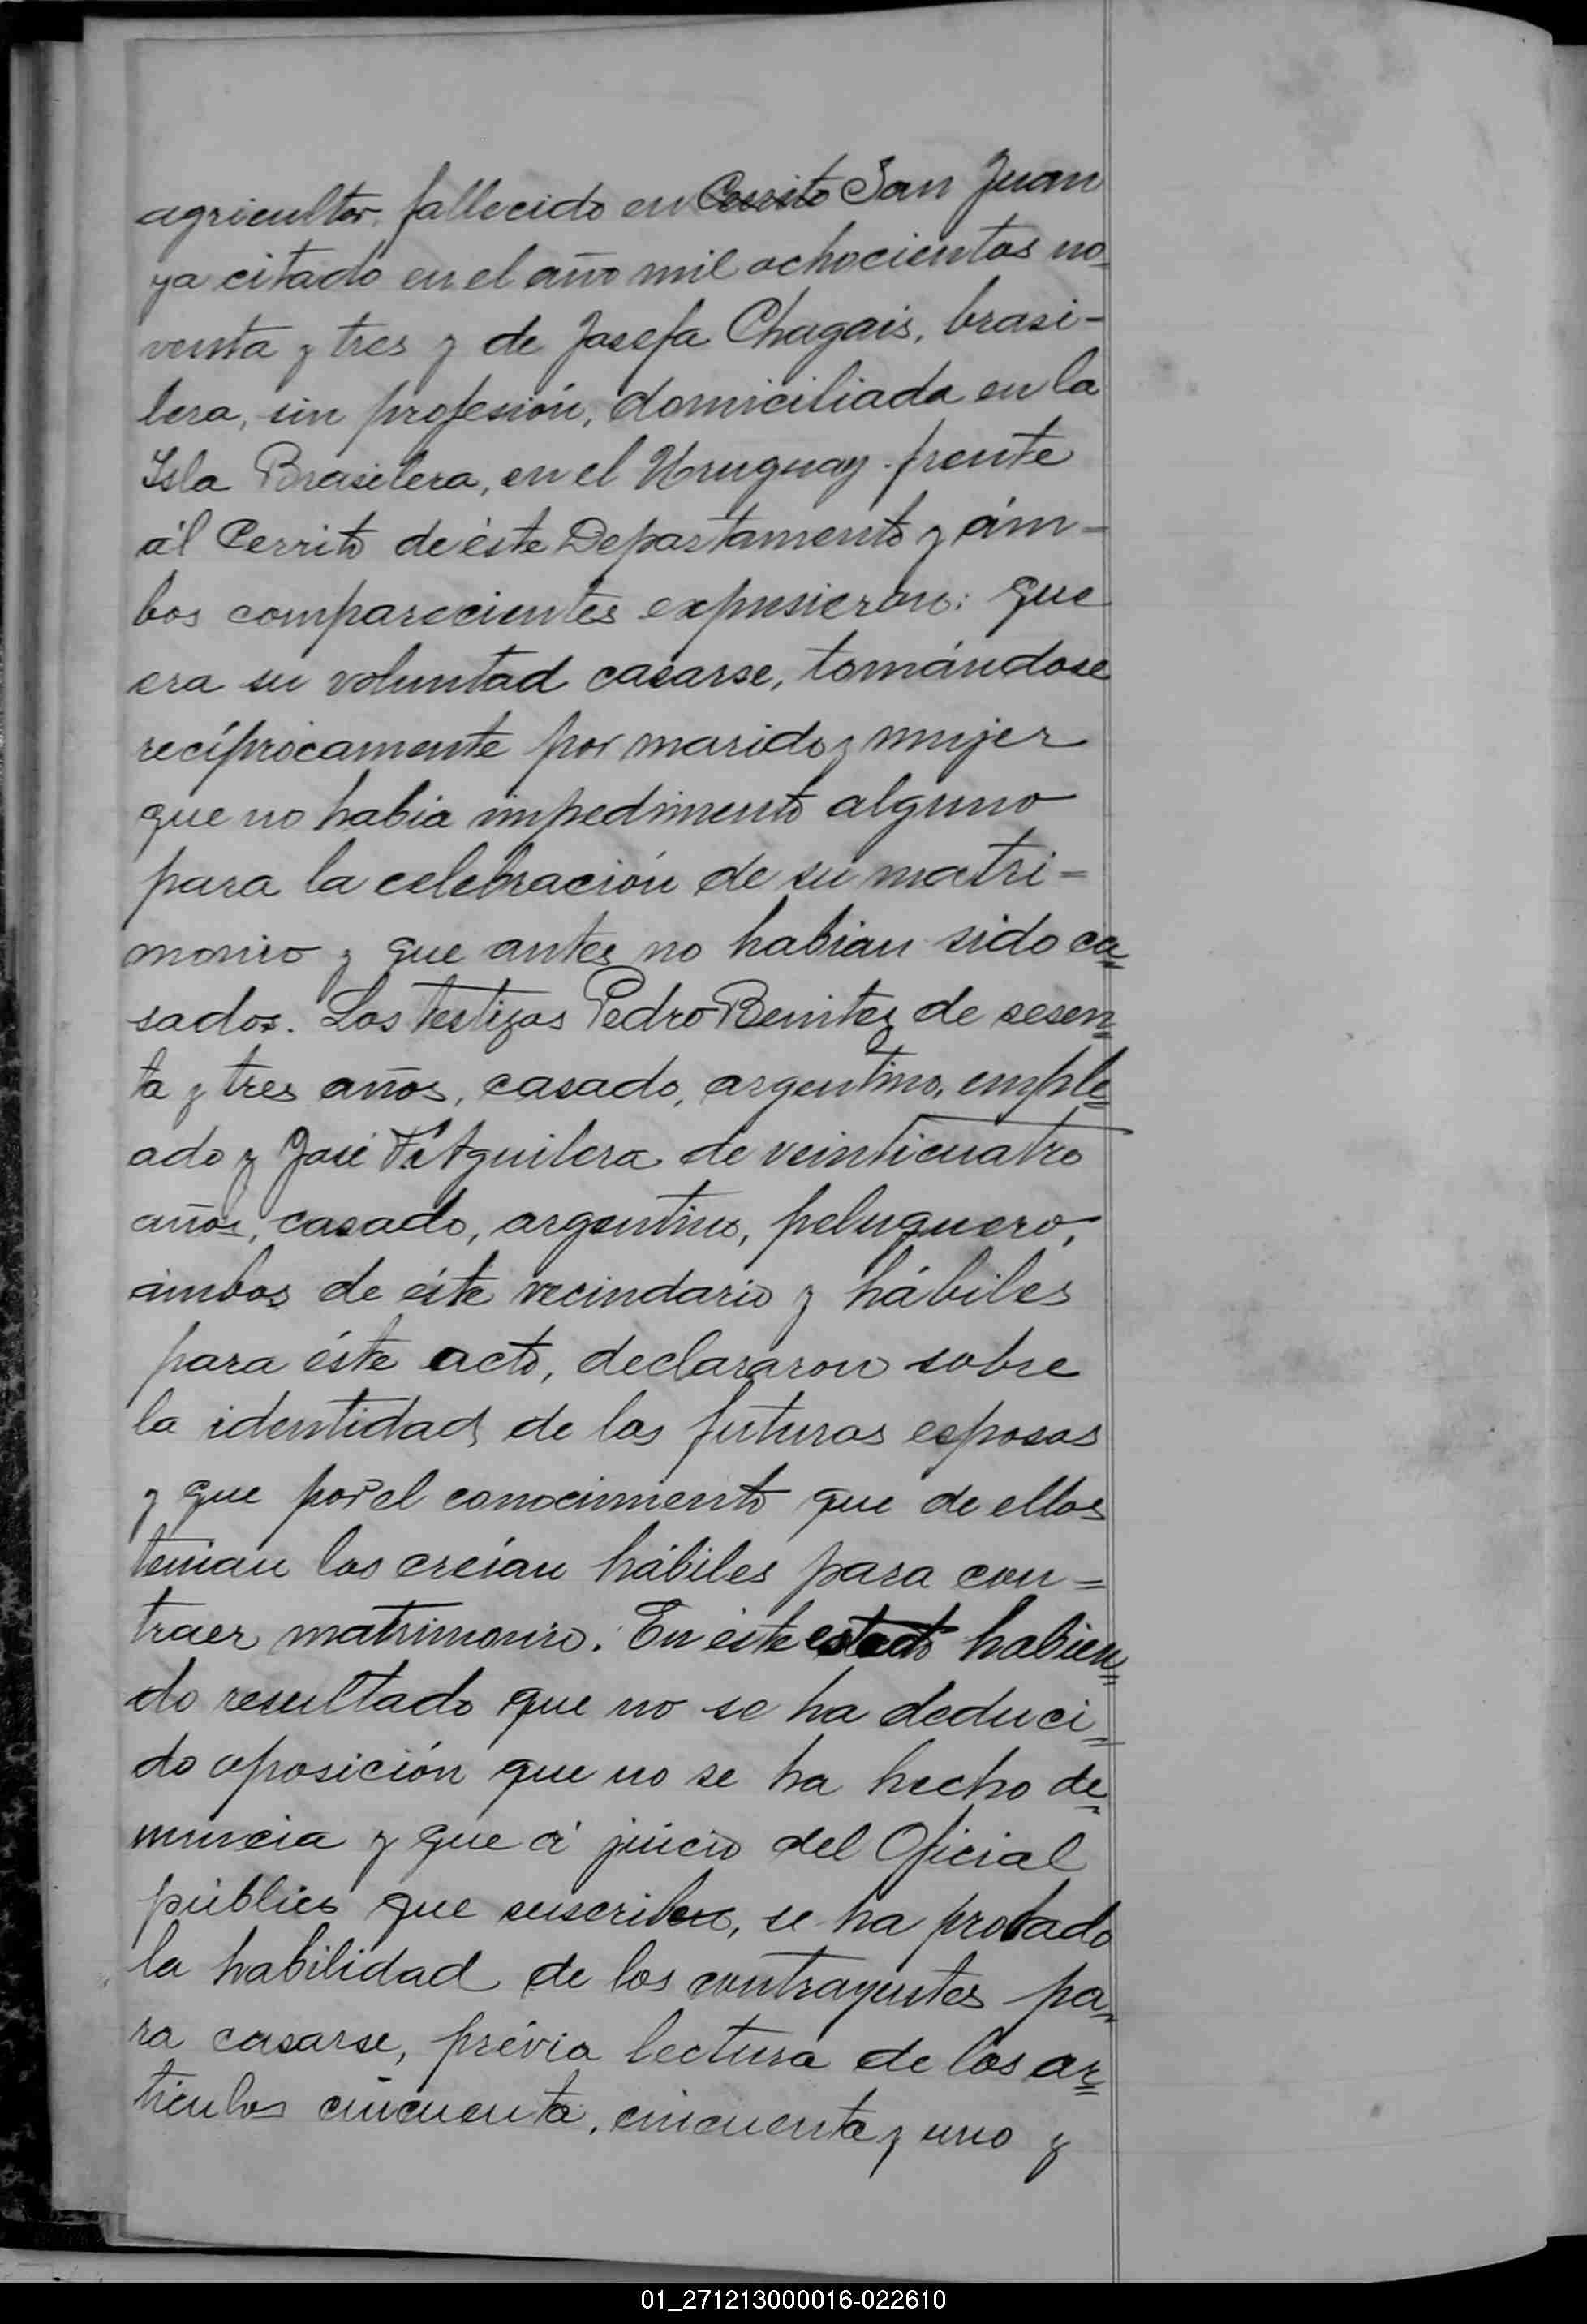 agricultor, fallecido en Cerrito San Juan
ya citado en el año mil ochocientos no-
venta y tres y de Josefa Chagais, brasi-
lera, sin profesión, domiciliada en la
Isla Brasilera, en el Uruguay frente
ál Cerrito de éste Departamento y ám-
bos comparecientes expusieron: que
era su voluntad casarse, tomándose
recíprocamente por marido y mujer
que no habia impedimento alguno
para la celebración de su matri-
monio y que antes no habian sido ca-
sados. Los testigos Pedro Benitez de sesen-
ta y tres años, casado, argentino, emple-
ado y José Aguilera de veinticuatro
años, casado, argentino, peluquero,
ámbos de éste vecindario y hábiles
para éste acto, declararon sobre
la identidad de los futuros esposos
y que por el conocimiento que de ellos
tenian los creían hábiles para con-
traer matrimonio. En éste estado habien-
do resultado que no se ha deduci-
do oposición que no se ha hecho de-
nuncia y que á juicio del Oficial
público que suscribe, se ha probado
la habilidad de los contrayentes pa-
ra casarse, prévia lectura de los ar-
ticulos cincuenta, cincuenta y uno y
01_271213000016-022610